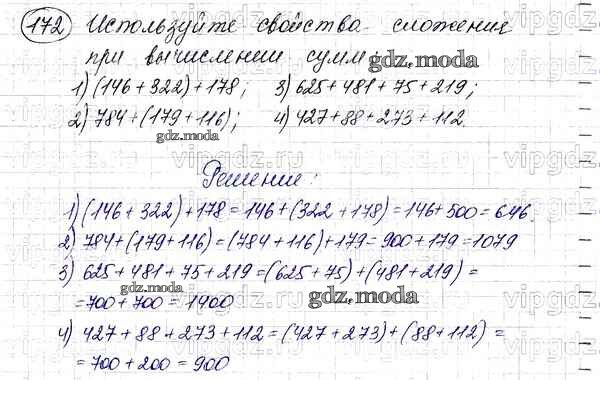 172 Используйте свойства сложения
при вычислении сумм:
1) (146+322)+178; 3) 625+481+75+219;
2) 784+(179+116); 4) 427+88+273+112.
Решение:
1) (146+322)+178=146+(322+178)=146+500=646.
2) 784+(179+116)=(784+116)+179=900+179=1079
3) 625+481+75+219=(625+75)+(481+219)=
=700+700=1400
4) 427+88+273+112=(427+273)+(88+112)=
=700+200=900
gdz.moda
gdz.moda
gdz.moda
vipgdz.ru